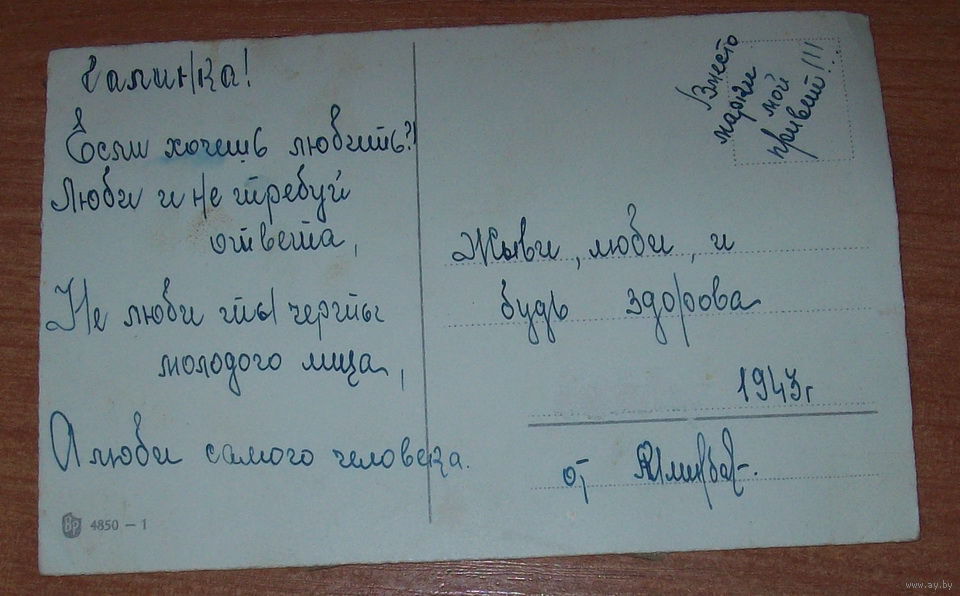 Галинка!
Если хочешь любить?!
Люби и не требуй
ответа,
Не люби ты черты
молодого лица,
А люби самого человека.
ВР 4850 — 1
Вместо
марки
мой
привет!!!
Живи, люби, и
будь здорова
1943г
от
www.ay.by